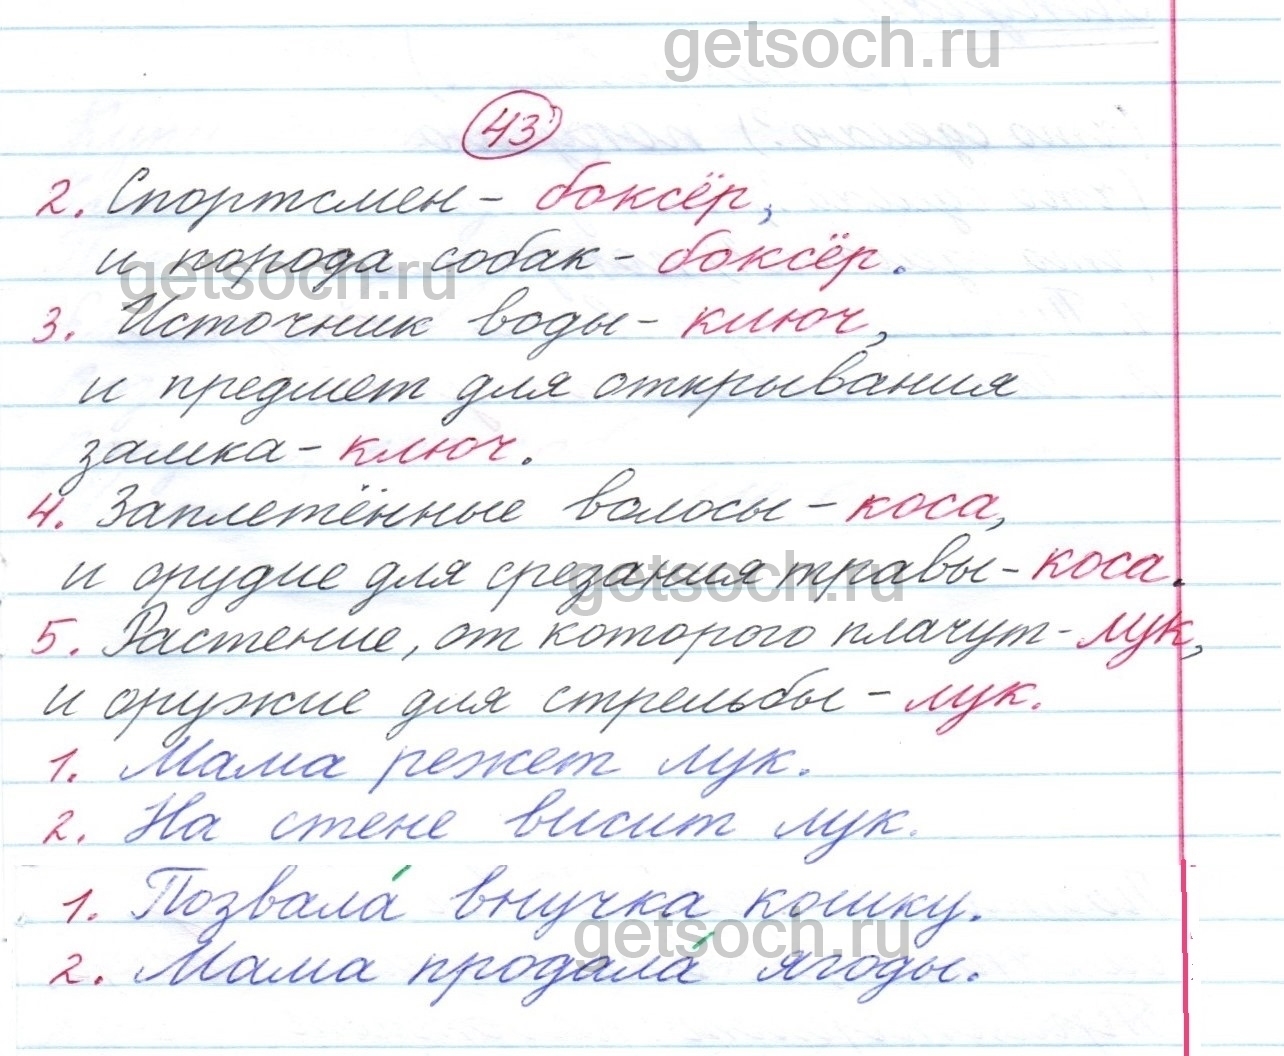 getsoch.ru
43
2. Спортсмен – боксёр,
и порода собак – боксёр.
getsoch.ru
3. Источник воды – ключ,
и предмет для открывания
замка – ключ.
4. Заплетённые волосы – коса,
и орудие для срезания травы – коса.
getsoch.ru
5. Растение, от которого плачут – лук,
и оружие для стрельбы – лук.
1. Мама режет лук.
2. На стене висит лук.
1. Позвала́ внучка кошку.
getsoch.ru
2. Мама продала́ ягоды.